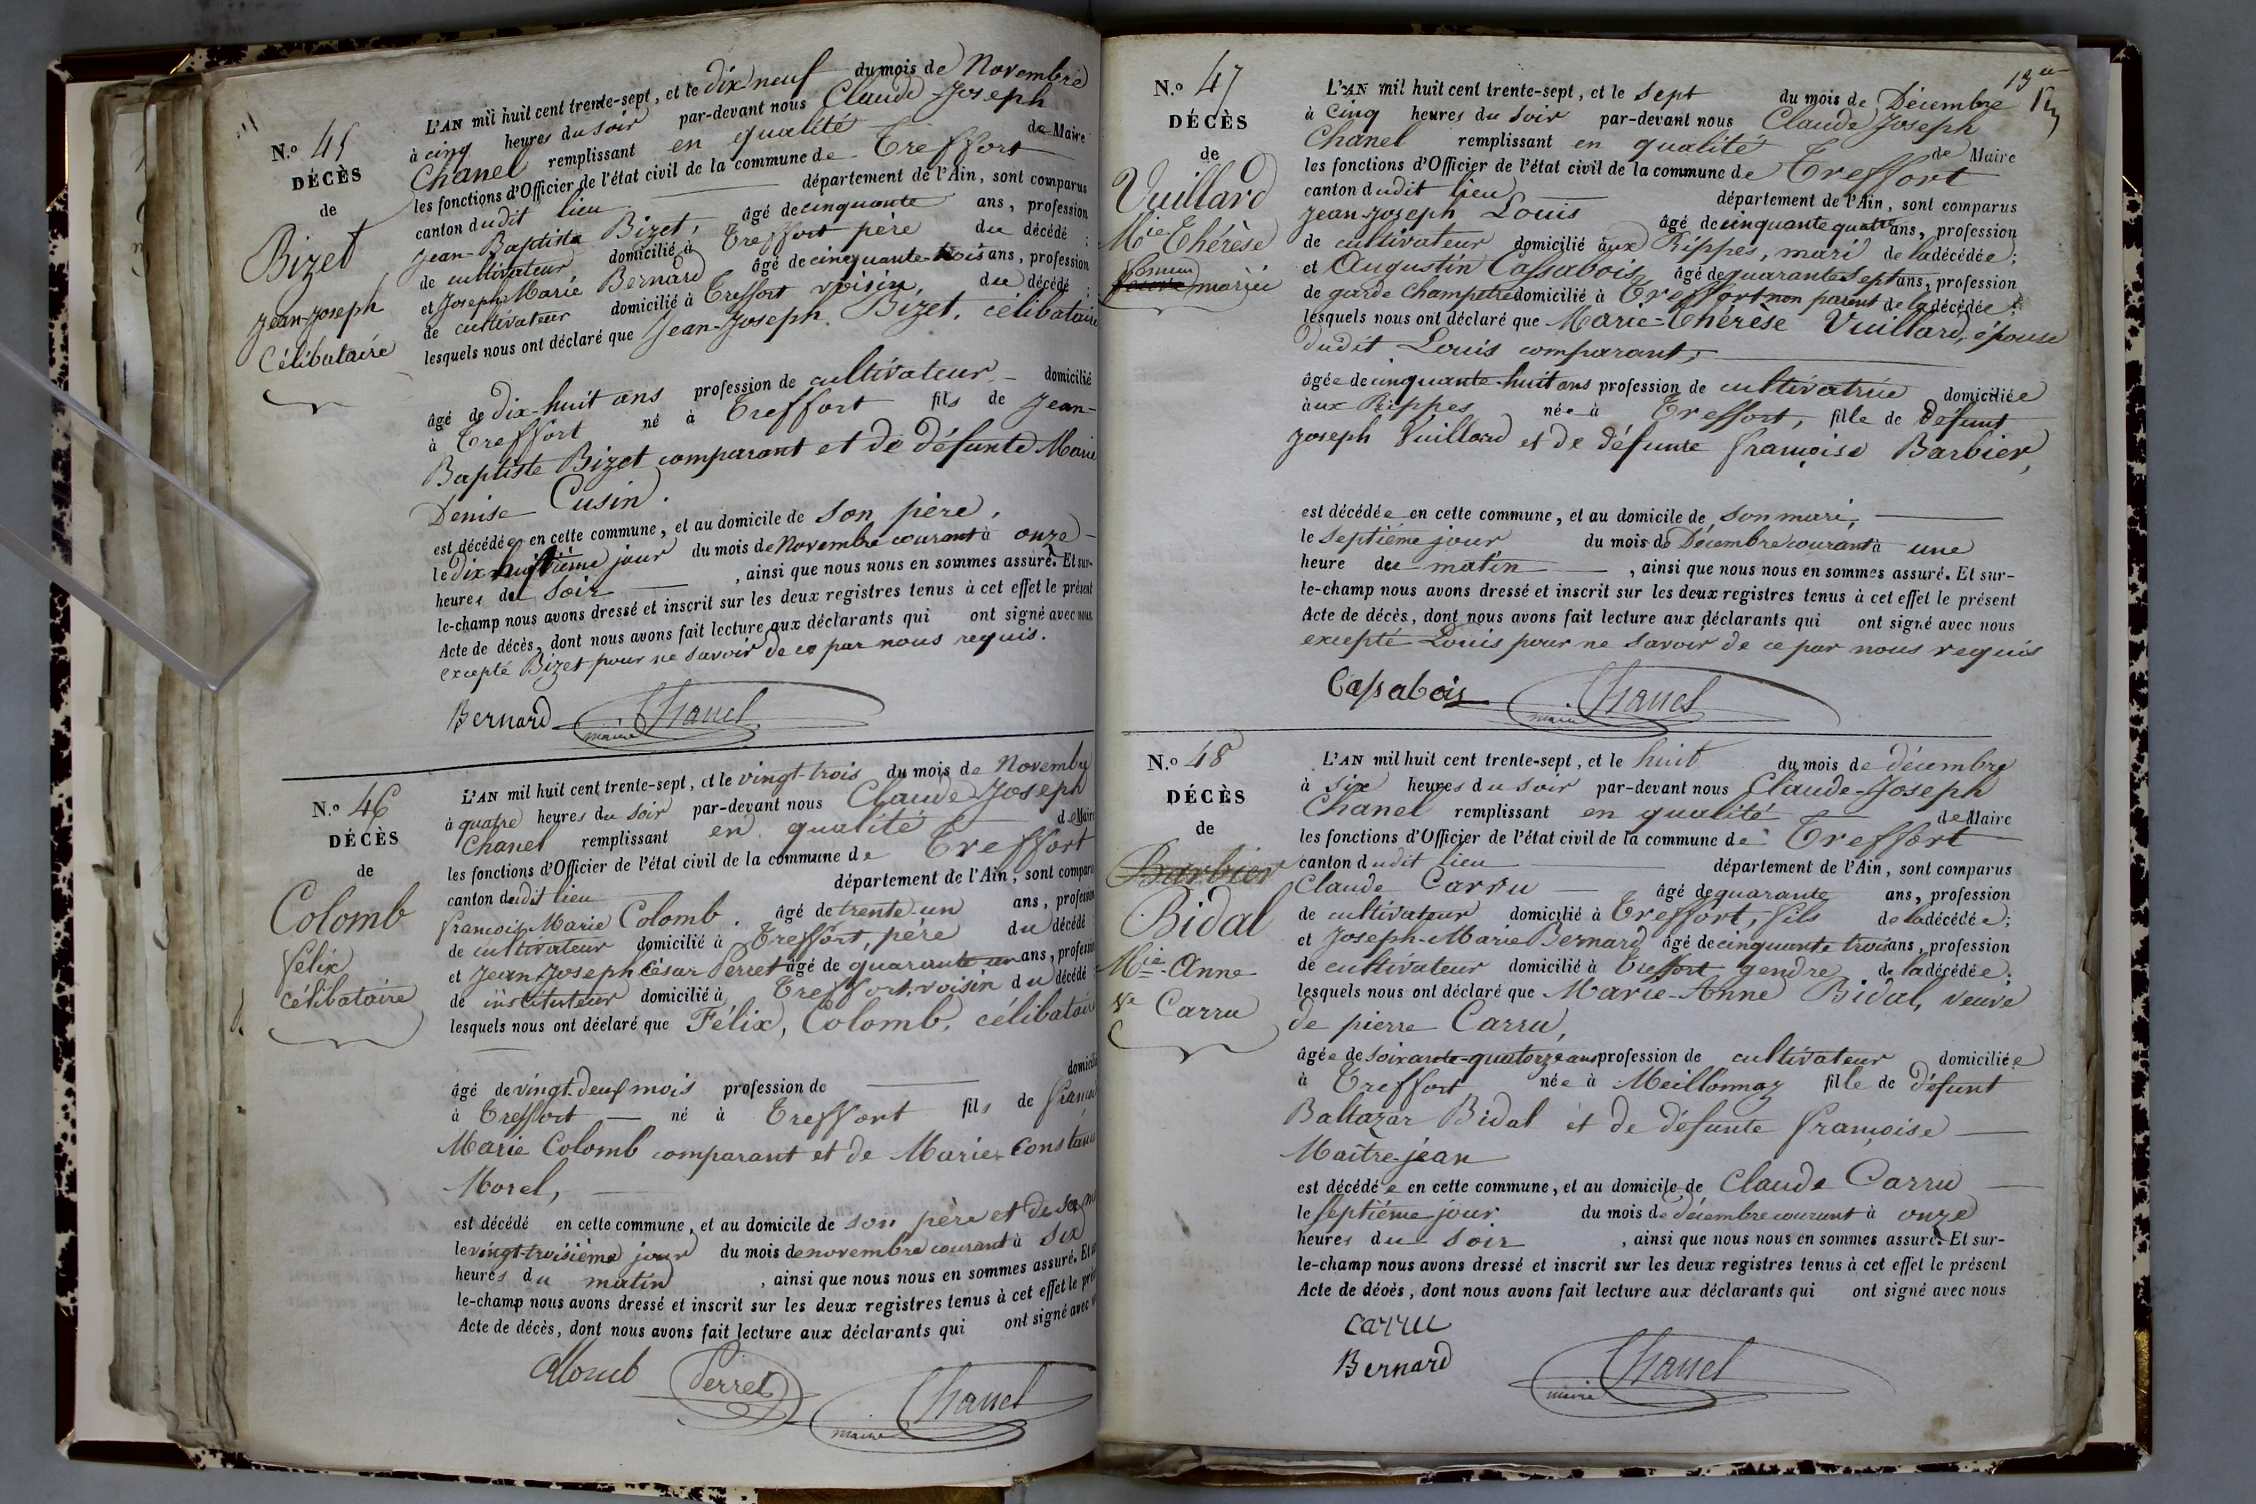 N.º 45
DÉCÈS
de
Bizet
Jean-Joseph
Célibataire
L'AN mil huit cent trente-sept, et le dix neuf du mois de Novembre
à cinq heures du soir par-devant nous Claude-Joseph
Chanel remplissant en qualité de Maire
les fonctions d'Officier de l'état civil de la commune de Treffort
canton dudit lieu département de l'Ain, sont comparus
Jean-Baptiste Bizet, âgé de cinquante ans, profession
de cultivateur, domicilié à Treffort père du décédé ;
et Joseph-Marie Bernard âgé de cinquante-trois ans, profession
de cultivateur domicilié à Treffort voisin, du décédé ;
lesquels nous ont déclaré que Jean-Joseph Bizet, célibataire
âgé de dix-huit ans profession de cultivateur domicilié
à Treffort né à Treffort fils de Jean-
Baptiste Bizet comparant et de défunte Marie
Denise Cusin.
est décédé en cette commune, et au domicile de son père,
le dix huitième jour du mois de Novembre courant à onze
heures du soir, ainsi que nous nous en sommes assuré. Et sur-
le-champ nous avons dressé et inscrit sur les deux registres tenus à cet effet le présent
Acte de décès, dont nous avons fait lecture aux déclarants qui ont signé avec nous
excepté Bizet pour ne savoir de ce par nous requis.
Bernard Chanel
maire
N.º 46
DÉCÈS
de
Colomb
Félix
célibataire
L'AN mil huit cent trente-sept, et le vingt-trois du mois de Novembre
à quatre heures du soir par-devant nous Claude Joseph
Chanel remplissant en qualité de Maire
les fonctions d'Officier de l'état civil de la commune de Treffort
canton dudit lieu département de l'Ain, sont comparus
François-Marie Colomb. âgé de trente-un ans, profession
de cultivateur domicilié à Treffort, père du décédé
et Jean-Joseph César Perret âgé de quarante un ans, profession
de instituteur domicilié à Treffort, voisin du décédé
lesquels nous ont déclaré que Félix, Colomb, célibataire
âgé de vingt-deux mois profession de domicilié
à Treffort né à Treffort fils de François
Marie Colomb comparant et de Marie Constance
Morel,
est décédé en cette commune, et au domicile de son père et de sa
le vingt-troisième jour du mois de novembre courant à six
heures du matin, ainsi que nous nous en sommes assuré. Et
le-champ nous avons dressé et inscrit sur les deux registres tenus à cet effet le
Acte de décès, dont nous avons fait lecture aux déclarants qui ont signé avec
Colomb Perret Chanel
maire
13
N.º 47
DÉCÈS
de
Vuillard
Mie Thérèse
femme
mariée
L'AN mil huit cent trente-sept, et le sept du mois de Décembre
à cinq heures du soir par-devant nous Claude Joseph
Chanel remplissant en qualité de Maire
les fonctions d'Officier de l'état civil de la commune de Treffort
canton dudit lieu département de l'Ain, sont comparus
Jean-Joseph Louis âgé de cinquante quatre ans, profession
de cultivateur domicilié aux Rippes, mari de la décédée ;
et Augustin Cassabois âgé de quarante sept ans, profession
de garde champetre domicilié à Treffort non parent de la décédée ;
lesquels nous ont déclaré que Marie-Thérèse Vuillard, épouse
dudit Louis comparant,
âgée de cinquante-huit ans profession de cultivatrice domiciliée
aux Rippes née à Treffort, fille de défunt
Joseph Vuillard et de défunte françoise Barbier,
est décédée en cette commune, et au domicile de son mari,
le septième jour du mois de Décembre courant à une
heure du matin, ainsi que nous nous en sommes assuré. Et sur-
le-champ nous avons dressé et inscrit sur les deux registres tenus à cet effet le présent
Acte de décès, dont nous avons fait lecture aux déclarants qui ont signé avec nous
excepté Louis pour ne savoir de ce par nous requis
Cassabois Chanel
maire
N.º 48
DÉCÈS
de
Barbier
Bidal
Mie-Anne
Ve Carru
L'AN mil huit cent trente-sept, et le huit du mois de décembre
à six heures du soir par-devant nous Claude-Joseph
Chanel remplissant en qualité de Maire
les fonctions d'Officier de l'état civil de la commune de Treffort
canton dudit lieu département de l'Ain, sont comparus
Claude Carru âgé de quarante ans, profession
de cultivateur domicilié à Treffort, fils de la décédée ;
et Joseph-Marie Bernard âgé de cinquante trois ans, profession
de cultivateur domicilié à Treffort gendre de la décédée ;
lesquels nous ont déclaré que Marie-Anne Bidal, veuve
de pierre Carru,
âgée de soixante-quatorze ans profession de cultivateur domiciliée
à Treffort née à Meillonnaz fille de défunt
Baltazar Bidal et de défunte françoise
Maître-jean
est décédée en cette commune, et au domicile de Claude Carru
le septième jour du mois de décembre courant à onze
heures du soir, ainsi que nous nous en sommes assuré. Et sur-
le-champ nous avons dressé et inscrit sur les deux registres tenus à cet effet le présent
Acte de décès, dont nous avons fait lecture aux déclarants qui ont signé avec nous
Carru
Bernard Chanel
maire